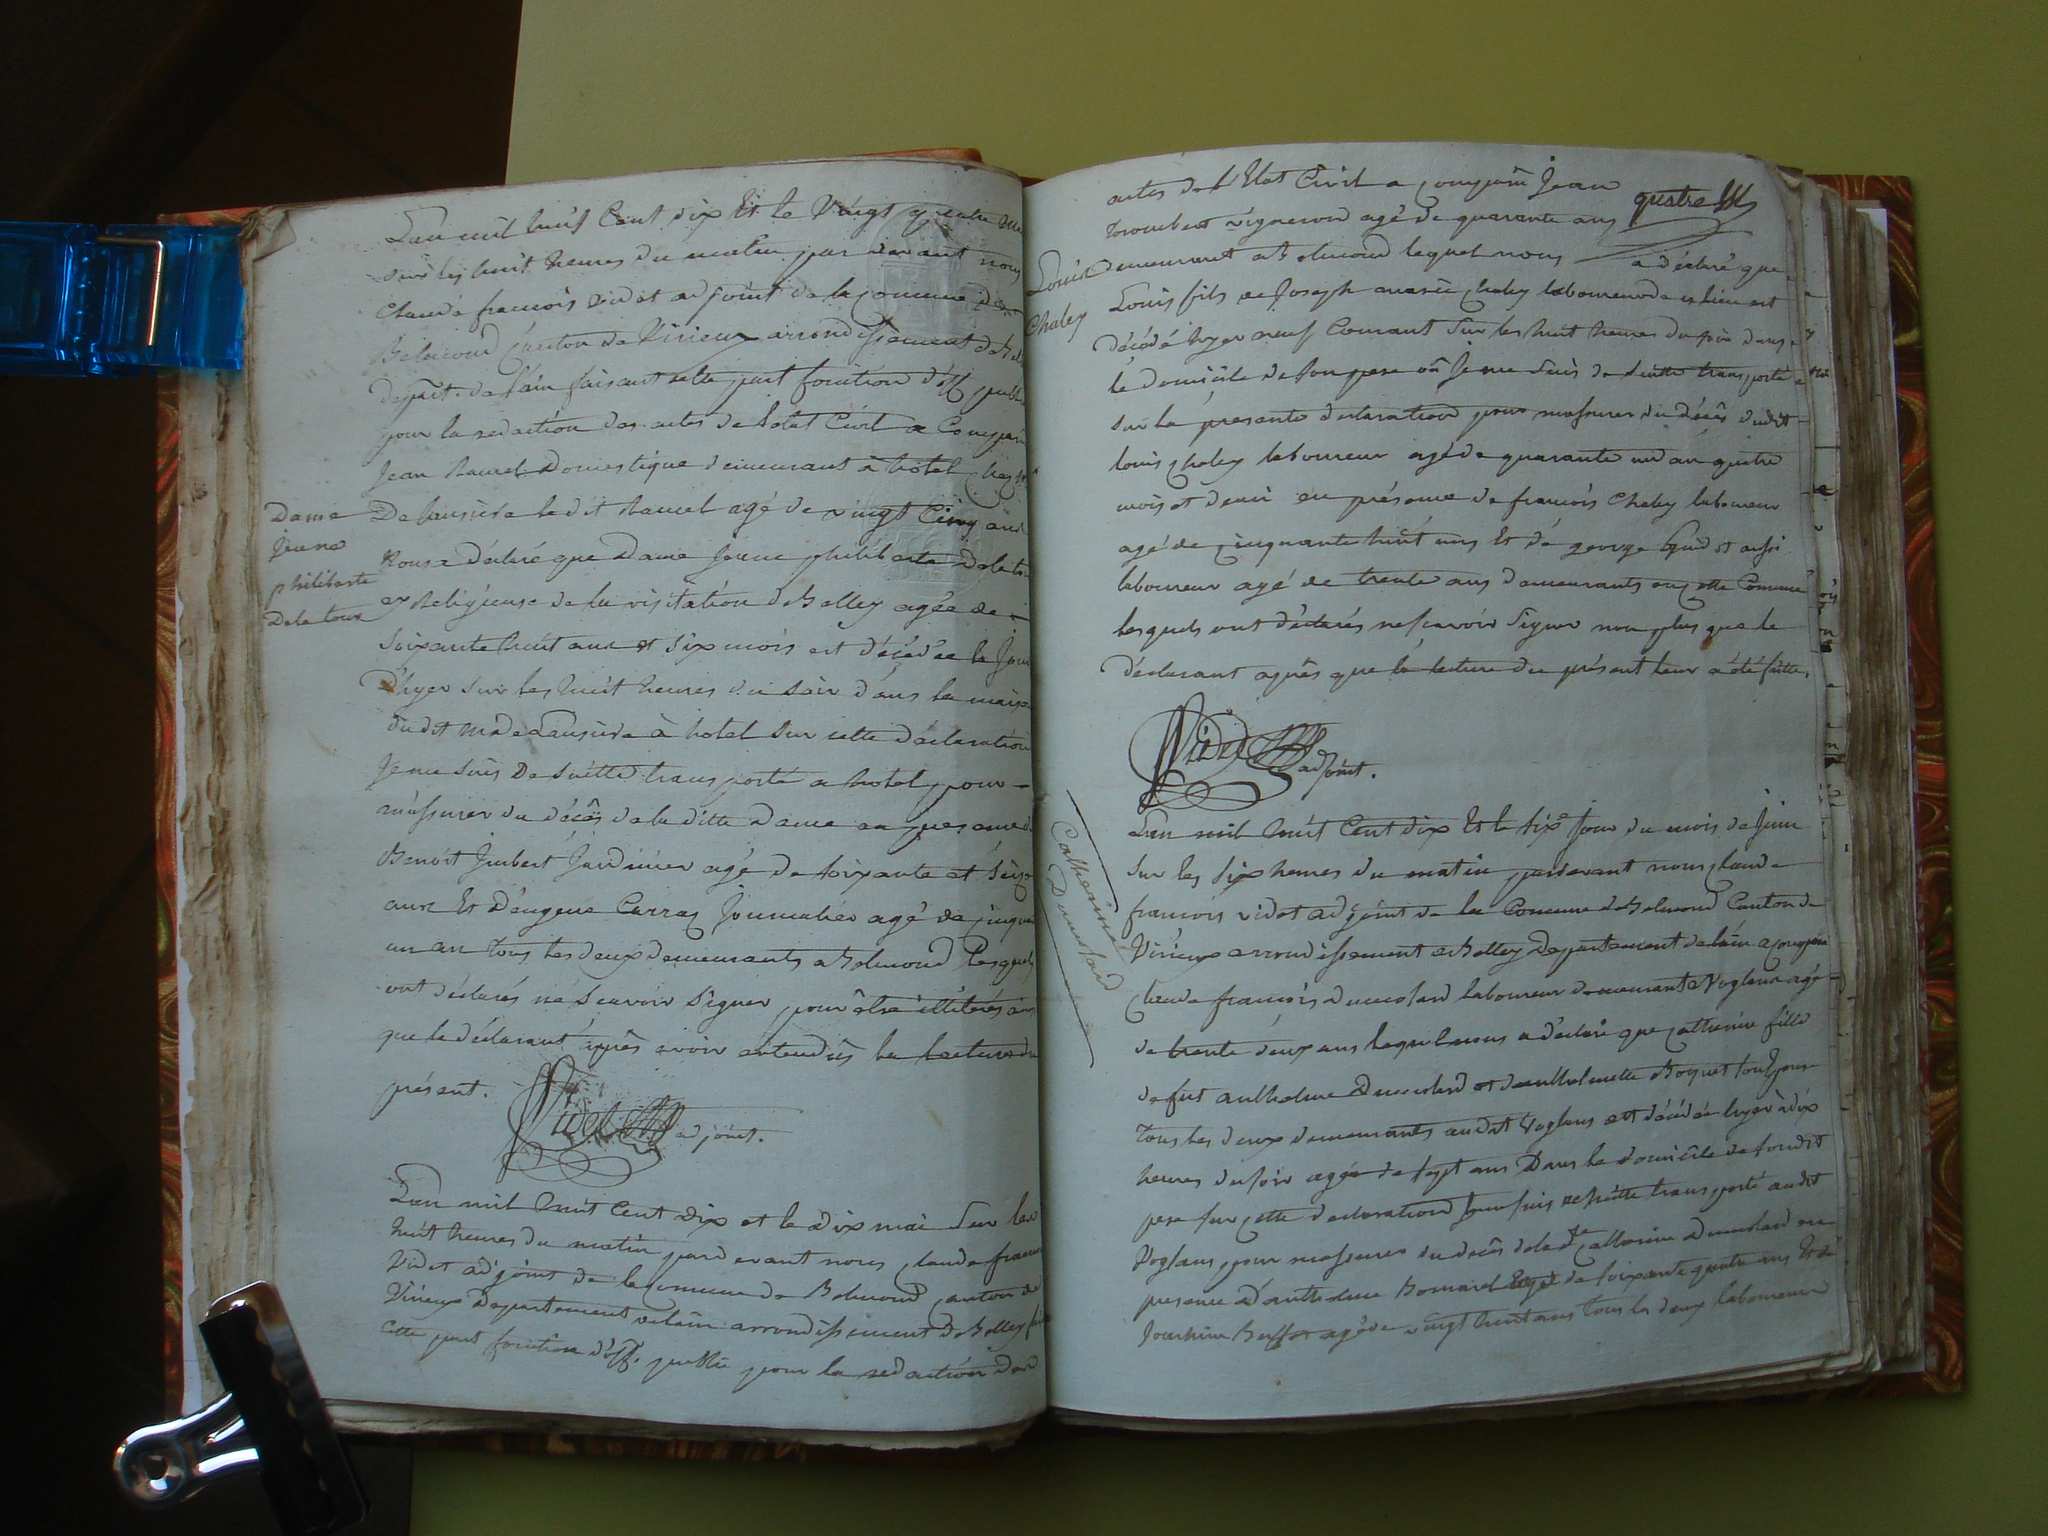 L'an mil huit Cent dix Et le Vingt quatre
sur les huit heures du matin par devant nous
Claude françois videt adjoint de la Comune de
Belmond Canton de Virieux arrondissement de Bel
depart. de l'ain faisant cette part fonction d'off publ
pour la rédaction des actes de l'état Civil a Comparu
Jean Domestique demeurant à hotel chez
Dame
jeane
philiberte
Delatour
le dit agé de vingt Cinq ans
Nous a déclaré que Dame Jeane philiberte Delatour
ex Religieuse de la visitation de Belley agée de
soixante huit ans et six mois est décédée le Jour
d'hyer sur les huit heures du soir dans la maison
dudit à hotel sur cette déclaration
Je me suis De suitte transporté a hotel pour
m'assurer du décès de la ditte Dame en presence de
Benoit Jmbert Jardinier agé de soixante et seize
ans Et D'eugene Carraz Journalier agé de cinquante
un an tous les deux demeurants a Belmond Lesquels
ont déclarés ne scavoir signer pour être illiterés ainsi
que le déclarant après avoir entendus la lecture du
présent.
Videt adjoint.
L'an mil huit Cent dix et le dix mai sur les
huit heures du matin pardevant nous claude francois
Videt adjoint de la Comune de Belmond canton de
Virieux Departement de l'ain arrondissement de Belley
cette part fonction d'off. public pour la rédaction des
actes de l'Etat Civil a comparu Jean
quatre
Trombert vigneron agé de quarante ans
Louis
Chaley
demeurant a Belmond lequel nous a déclaré que
Louis fils de Joseph marie chaley laboureur de ce lieu est
décédé hyer neuf Courant sur les huit heures du soir dans
le domicile de son pere où Je me suis de suitte transporté
sur la presente déclaration pour m'assurer du décès dudit
louis chaley laboureur agé de quarante un an quatre
mois et demi en présence de francois Chaley laboureur
agé de cinquante huit ans Et de george aussi
laboureur agé de trente ans demeurants en cette Comune
lesquels ont déclarés ne scavoir signer non plus que le
déclarant après que la lecture du présent leur a été faitte.
Videt adjoint.
Catherine
Dumolard
L'an mil huit Cent dix Et le six.e Jour du mois de Juin
sur les six heures du matin pardevant nous claude
francois videt adjoint de la Comune de Belmond Canton de
Virieux arrondissement de Belley Departement de l'ain a comparu
Claude francois dumolard laboureur demeurant a Voglans agé
de trente deux ans lequel nous a déclaré que catherine fille
de fut anthelme Dumolard et d'anthelmette
tous les deux demeurants audit Voglans est décédée hyer à dix
heures du soir agée de sept ans Dans le domicile de sondit
pere sur cette declaration Je me suis de suitte transporté audit
Voglans pour m'assurer du décès de lad.te catherine Dumolard en
presence d'anthelme agé de soixante quatre ans Et de
Joachim agé de vingt huit ans tous les deux laboureurs